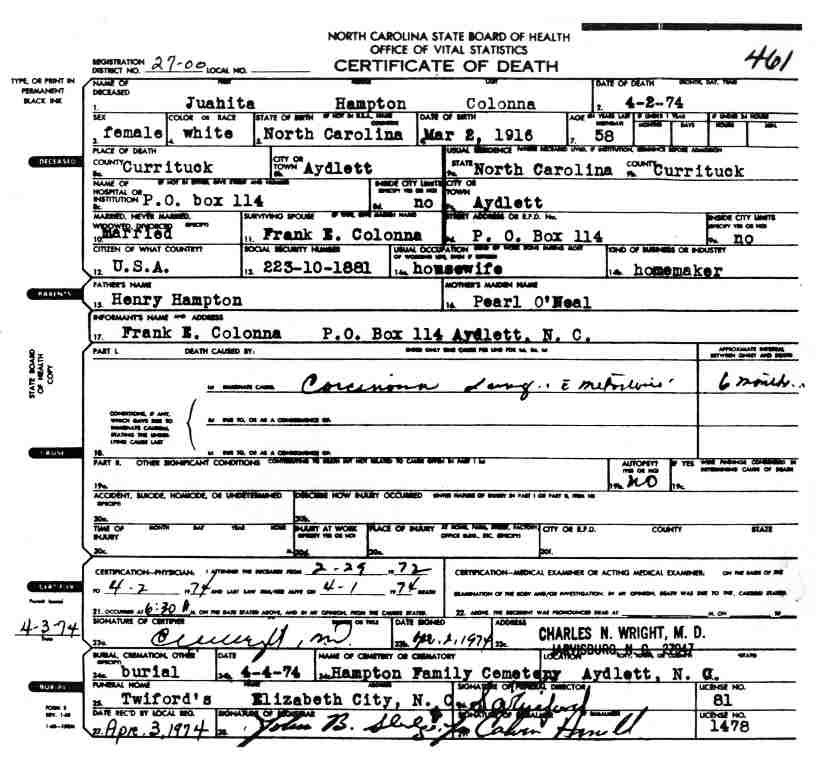 NORTH CAROLINA STATE BOARD OF HEALTH
OFFICE OF VITAL STATISTICS
CERTIFICATE OF DEATH
461
REGISTRATION DISTRICT NO. 27-00 LOCAL NO.
TYPE, OR PRINT IN PERMANENT BLACK INK
NAME OF DECEASED FIRST MIDDLE LAST DATE OF DEATH MONTH, DAY, YEAR
1. Juahita Hampton Colonna 2. 4-2-74
SEX COLOR OR RACE STATE OF BIRTH DATE OF BIRTH AGE
3. female 4. white 5. North Carolina 6. Mar 2, 1916 7. 58
DECEASED
PLACE OF DEATH USUAL RESIDENCE
COUNTY Currituck CITY OR TOWN Aydlett STATE North Carolina COUNTY Currituck
NAME OF HOSPITAL OR INSTITUTION P.O. box 114 INSIDE CITY LIMITS no CITY OR TOWN Aydlett
MARRIED, NEVER MARRIED, WIDOWED, DIVORCED SURVIVING SPOUSE STREET ADDRESS OR R.F.D. No. INSIDE CITY LIMITS
10. Married 11. Frank E. Colonna 9d. P. O. Box 114 9e. no
CITIZEN OF WHAT COUNTRY? SOCIAL SECURITY NUMBER USUAL OCCUPATION KIND OF BUSINESS OR INDUSTRY
12. U.S.A. 13. 223-10-1881 14a. housewife 14b. homemaker
PARENTS
FATHER'S NAME MOTHER'S MAIDEN NAME
15. Henry Hampton 16. Pearl O'Neal
INFORMANT'S NAME AND ADDRESS
17. Frank E. Colonna P.O. Box 114 Aydlett, N. C.
STATE BOARD OF HEALTH COPY
PART I. DEATH CAUSED BY: APPROXIMATE INTERVAL BETWEEN ONSET AND DEATH
IMMEDIATE CAUSE 6 months
CONDITIONS, IF ANY, WHICH GAVE RISE TO IMMEDIATE CAUSE(S), STATING THE UNDERLYING CAUSE LAST
DUE TO, OR AS A CONSEQUENCE OF:
DUE TO, OR AS A CONSEQUENCE OF:
CAUSE
18.
PART II. OTHER SIGNIFICANT CONDITIONS CONTRIBUTING TO DEATH BUT NOT RELATED TO CAUSE GIVEN IN PART I AUTOPSY? YES OR NO IF YES WERE FINDINGS CONSIDERED IN DETERMINING CAUSE OF DEATH
19a. 19b. NO 19c.
ACCIDENT, SUICIDE, HOMICIDE, OR UNDETERMINED DESCRIBE HOW INJURY OCCURRED
20a. 20b.
TIME OF INJURY MONTH DAY YEAR HOUR INJURY AT WORK PLACE OF INJURY CITY OR R.F.D. COUNTY STATE
20c. 20d. 20e. 20f.
CERTIFIER
CERTIFICATION—PHYSICIAN: I ATTENDED THE DECEASED FROM 2-29 1972
TO 4-2 1974 AND LAST SAW ALIVE ON 4-1 1974 DEATH
21. OCCURRED AT 6:30 M. ON THE DATE STATED ABOVE, AND IN MY OPINION, FROM THE CAUSES STATED.
CERTIFICATION—MEDICAL EXAMINER OR ACTING MEDICAL EXAMINER: ON THE BASIS OF THE
EXAMINATION OF THE BODY AND/OR INVESTIGATION, IN MY OPINION, DEATH WAS DUE TO THE CAUSE(S) STATED.
22. ABOVE THE DECEDENT WAS PRONOUNCED DEAD AT M. ON
4-3-74
SIGNATURE OF CERTIFIER DATE SIGNED ADDRESS
23a. 23b. Apr. 2, 1974 23c. CHARLES N. WRIGHT, M. D.
JARVISBURG, N. C. 27947
BURIAL, CREMATION, OTHER DATE NAME OF CEMETERY OR CREMATORY LOCATION
24a. burial 4-4-74 24c. Hampton Family Cemetery Aydlett, N. C.
BURIAL
FUNERAL HOME SIGNATURE OF FUNERAL DIRECTOR LICENSE NO.
25. Twiford's Elizabeth City, N. C. 81
DATE REC'D BY LOCAL REG. SIGNATURE OF REGISTRAR LICENSE NO.
27. Apr. 3, 1974 28. John B. 1478